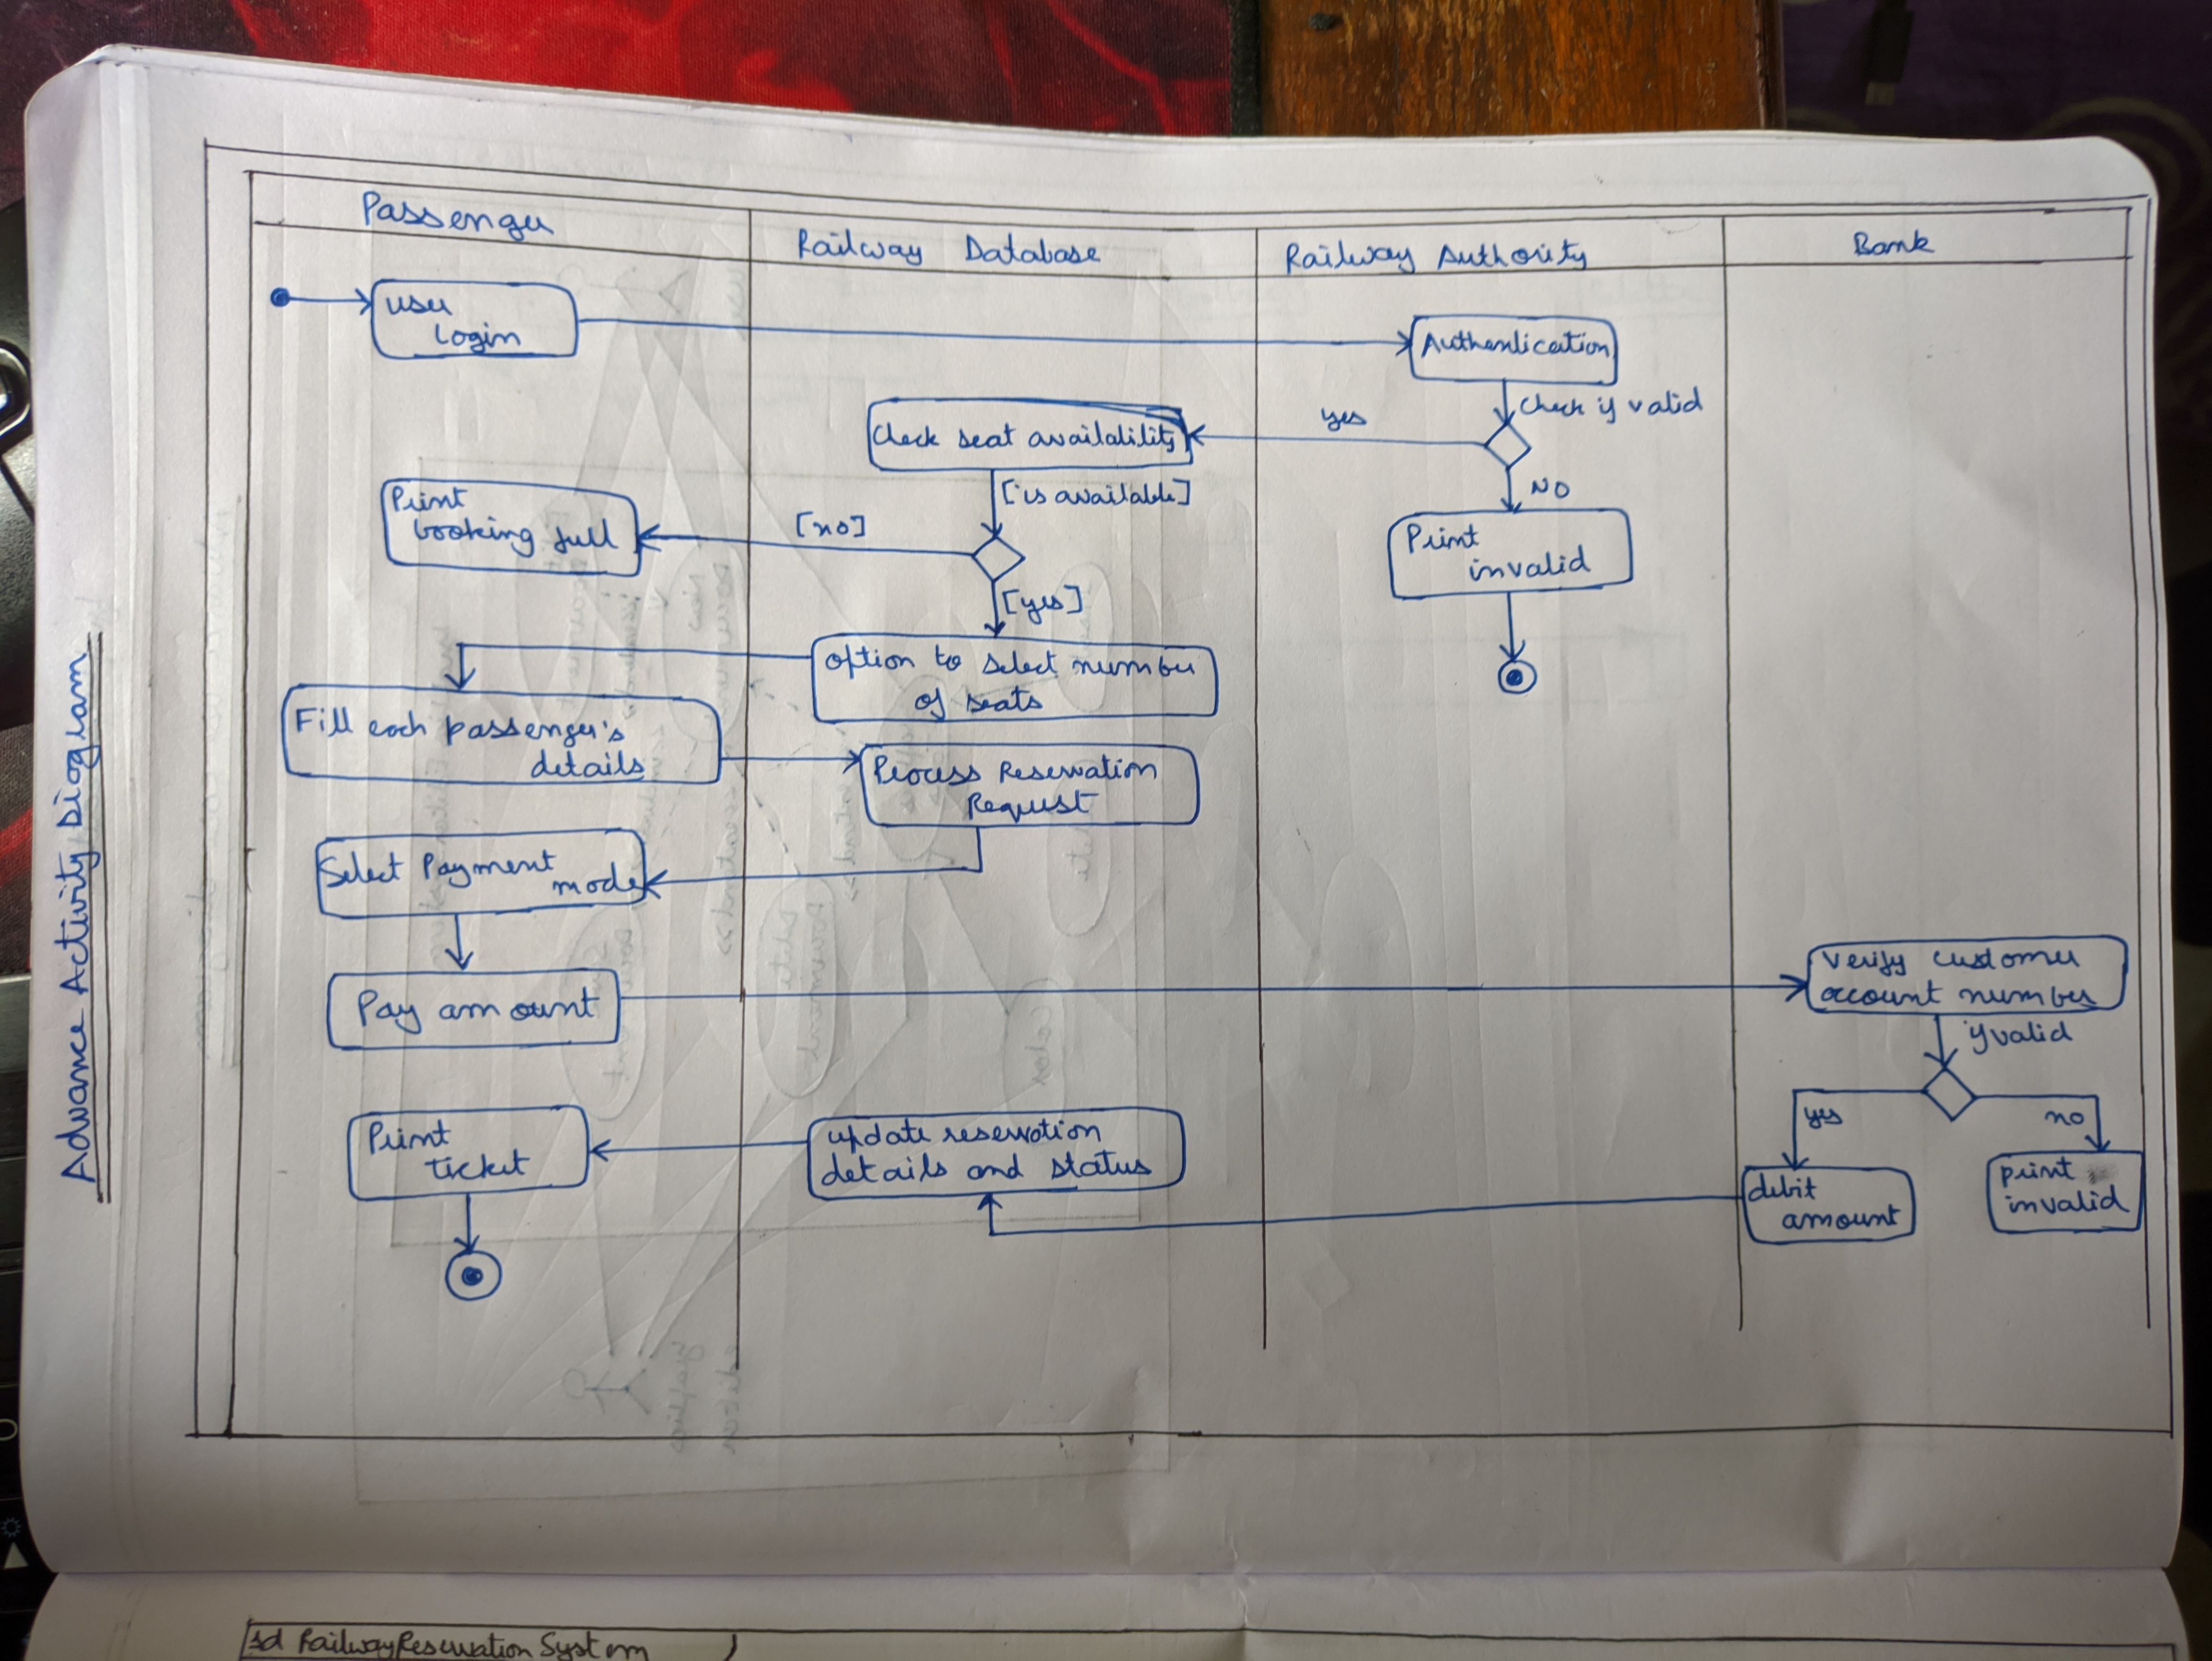 Advance Activity Diagram
Passenger
Railway Database
Railway Authority
Bank
user
login
Authentication
Check if valid
yes
Check seat availability
NO
[is available]
Print
booking full
[no]
Print
invalid
[yes]
option to select number
of seats
Fill each passenger's
details
Process Reservation
Request
Select Payment
mode
Pay amount
Verify customer
account number
if valid
yes
no
Print
ticket
update reservation
details and status
debit
amount
print
invalid
sd RailwayReservationSystem